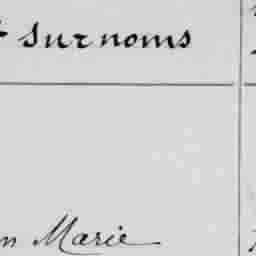 surnoms
Marie